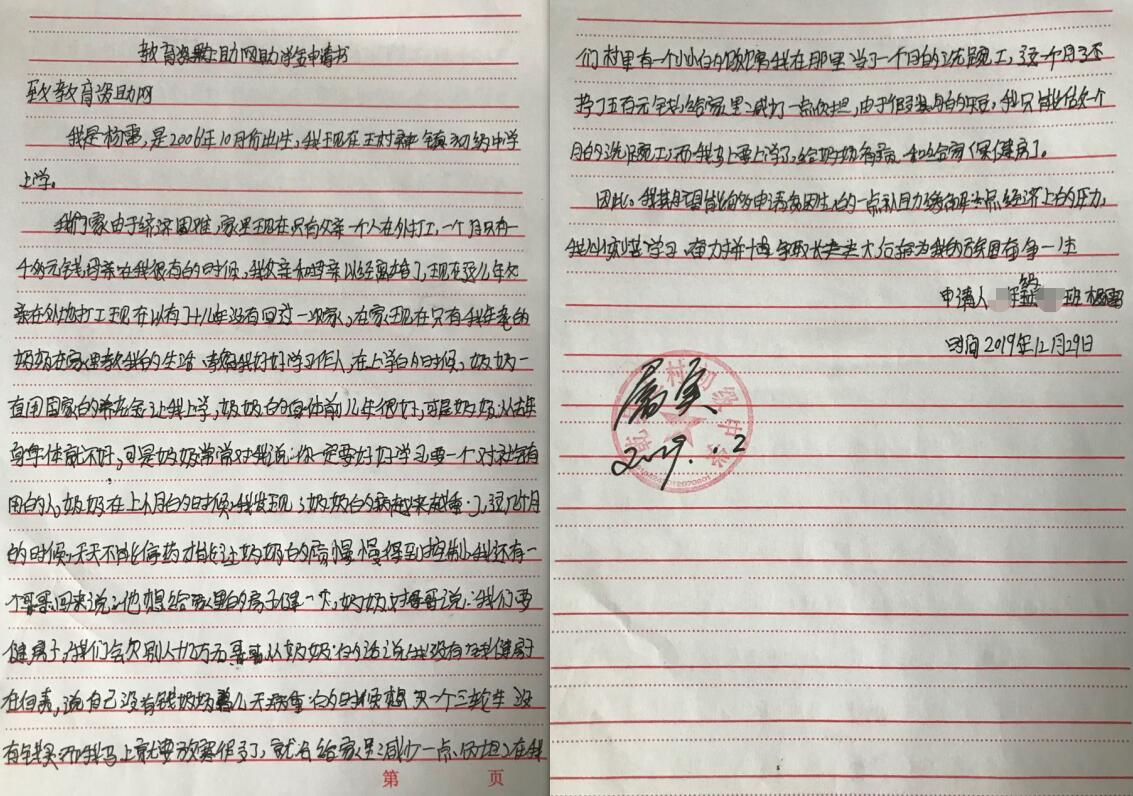 教育资助网助学金申请书
致教育资助网
我是杨雷,是2006年10月份出生,我现在王村镇初级中学
上学。
我们家由于经济困难,家里现在只有父亲一个人在外打工,一个月只有
千多元钱,母亲在我很小的时候,我父亲和母亲以经离婚了,现在这几年父
亲在外地打工现在以有了十几年没有回过一次家,在家现在只有我年老的
奶奶在家里教我的生活,教我好好学习作人,在上学的时候,奶奶一
直用国家的养老金让我上学,奶奶的身体前几年很好,可是奶奶从去年
身体就不好,可是奶奶常常对我说:你一定要好好学习要一个对社会有
用的人,奶奶在上个月的时候我发现,奶奶的病越来越重了,这几个月
的时候,天天不能停药才能让奶奶的病慢慢得到控制,我还有一
个哥哥回来说:他想给家里的房子建一次,奶奶对哥哥说:我们要
健房子,我们会欠别人十几万元哥哥从奶奶的话说我没有钱健房子
在白天,说自己没有钱奶奶几天病重的时候想买一个三轮车没
有钱买而我马上就要放寒假了,就去给家里减少一点负担,在我
第 页
们村里有一个小小的饭馆我在那里当了一个月的洗碗工,这一个月了还
挣了五百元钱,给家里减少一点负担,由于假期的短,我只能估个
月的洗碗工,而我马上要上学了,给奶奶看病,和给家保健房了。
因此,我其希望能给申请贫困生的一点补助力缓解决点经济上的压力,
我以该 学习,奋力拼博争取长大后为我的祖国奋争一生
申请人 年级 班 杨雷
时间 2019年12月29日
属实
村初级中学
2019. .2